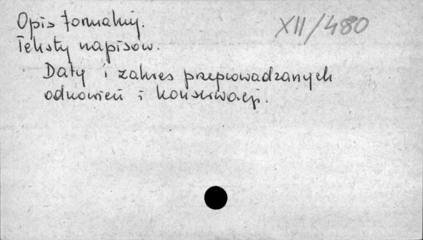 Opis formalny.
XII/480
Teksty napisów.
Daty i zakres przeprowadzanych
odnowień i konserwacji.